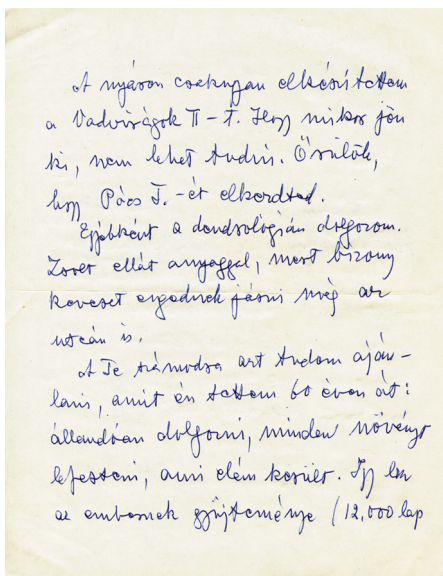 A nyáron csakugyan elkészítettem
a Vadvirágok II-t. Hogy mikor jön
ki, nem lehet tudni. Örülök,
hogy Pócs T.-ét elkezdted.
Egyébként a dendrológián dolgozom.
Zsolt ellát anyaggal, mert bizony
keveset engednek járni még az
utcán is.
A Te számodra azt tudom aján-
lani, amit én tettem 60 éven át:
állandóan dolgozni, minden növényt
lefesteni, ami elém került. Így lesz
az embernek gyűjteménye (12,000 lap